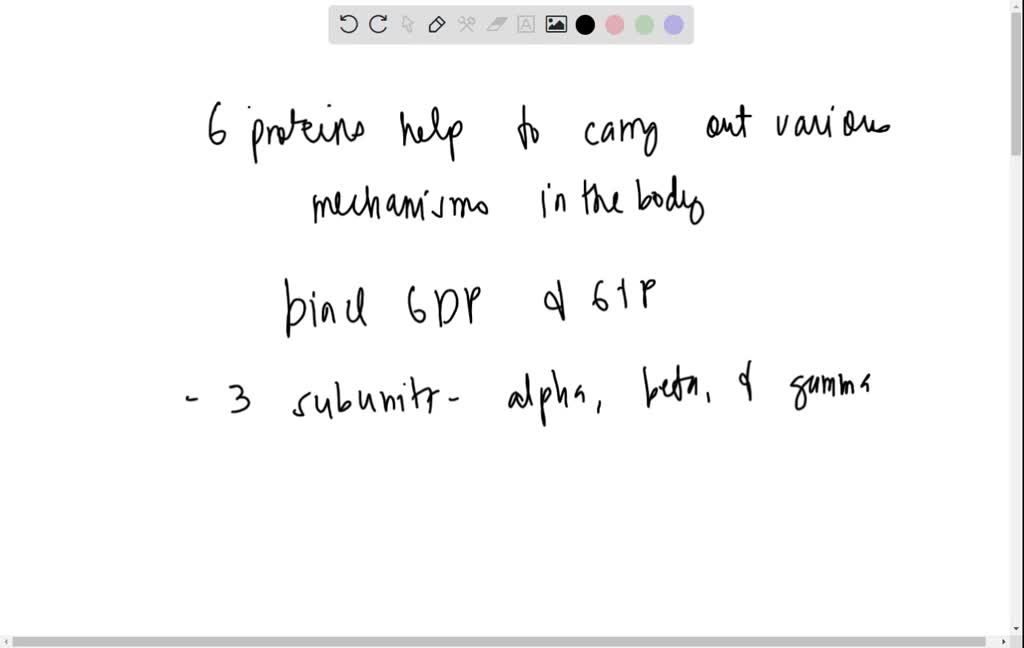 G proteins help to carry out various
mechanisms in the body
bind GDP & GTP
- 3 subunits - alpha, beta, & gamma